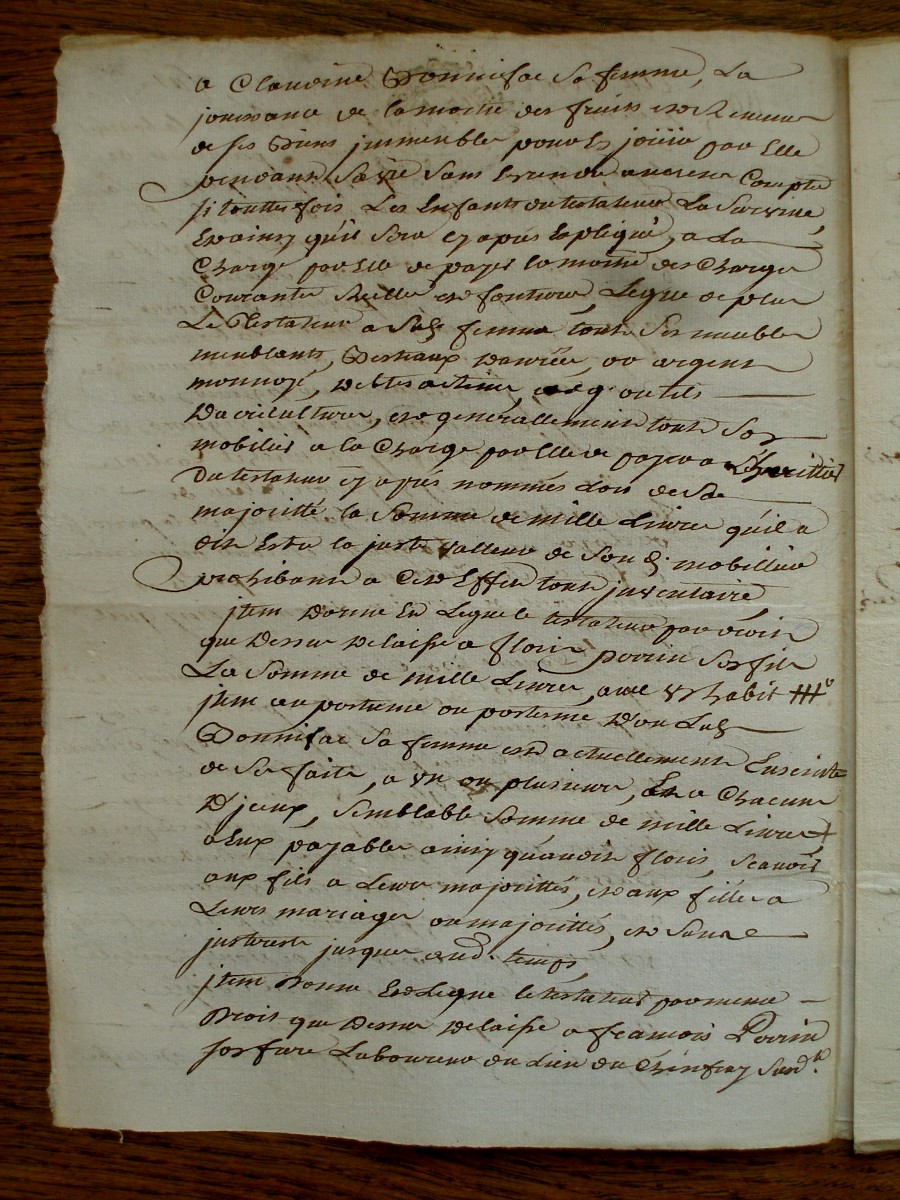 a Claudine Bonnifac Sa femme, La
jouissance de la moitié des fruits et Revenus
de ses Biens immeubles pour Les joüir par Elle
pendant Sa vie Sans En rendre aucun Compte
Si touttes fois Les Enfants du testateur La Survive,
Et ainsy qu'il Sera cy après Expliqué, a La
Charge par Elle de payer la moitié des Charges
Courantes Réelles et fontieres, Legue de plus
Le Testateur a Sad. femme touts Ses meubles
meublants, Bestiaux Danrées, or argent
monnoyé, debtes actives, outils
Dagriculture, et générallement tout Son
mobilier a la Charge par Elle de payer a L'héritier
Du testateur cy après nommés Lors de Sa
majorité la Somme de mille Livres qu'il a
dit Estre la juste valleur de Son d. mobillier
prohibant a Cet Effet tout inventaire
jtem Donne Et Legue le testateur par droit
que Dessus Delaisse a floris perrin Son fils
La Somme de mille Livres, avec un habit
jtem au postume ou postume Dont Lad.
Bonnifac Sa femme est actuellement Enceinte
de Ses faits, a un ou plusieurs, Et a Chacun
D'jceux, Semblable Somme de mille Livres
a Eux payable ainsy qu'audit floris, Scavoir
aux fils a Leurs majorittés, et aux filles a
Leurs mariages ou majorittés, et Sans
jnterest jusques aud. temps,
jtem Donne Et Legue le testateur par meme
Droit que Dessus Delaisse a francois Perrin
Son frere Laboureur du Lieu du